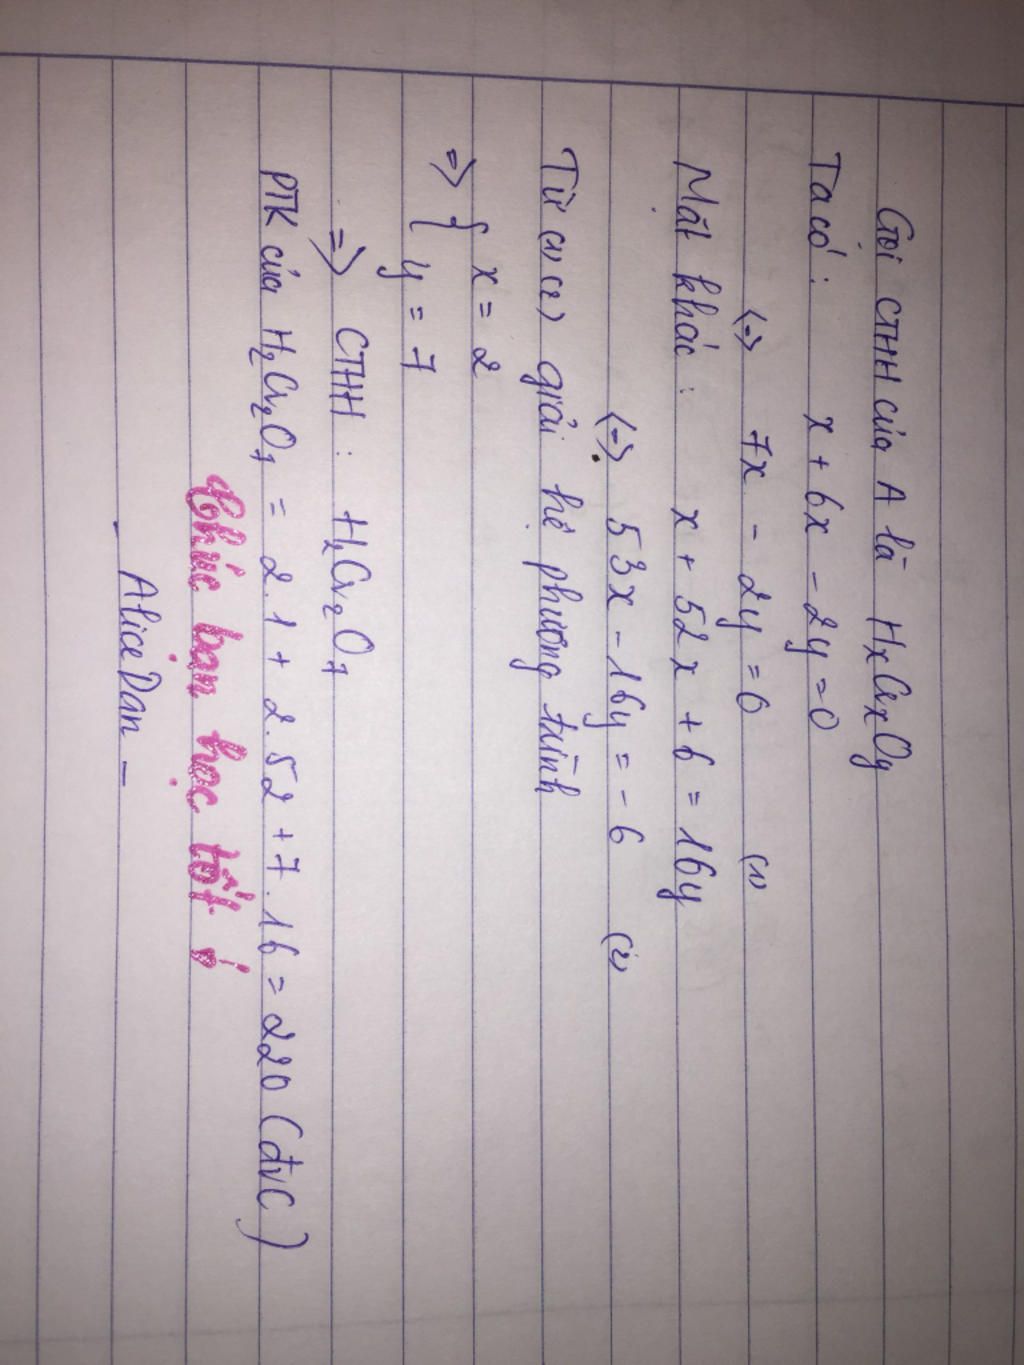 Gọi CTHH của A là HxCrxOy
Ta có : x + 6x - 2y = 0
(=) 7x - 2y = 0 (1)
Mặt khác : x + 52x + 6 = 16y
(=) 53x - 16y = - 6 (2)
Từ (1) (2) giải hệ phương trình
=> { x = 2
y = 7
=> CTHH : H₂Cr₂O₇
PTK của H₂Cr₂O₇ = 2.1 + 2.52 + 7.16 = 220 (đvC)
Chúc bạn học tốt !
- AliceDan -